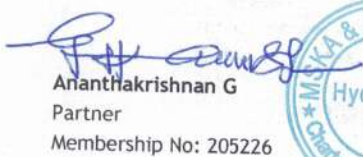 Ananthakrishnan G
Partner
Membership No: 205226
MSKA &
Hyd
Char